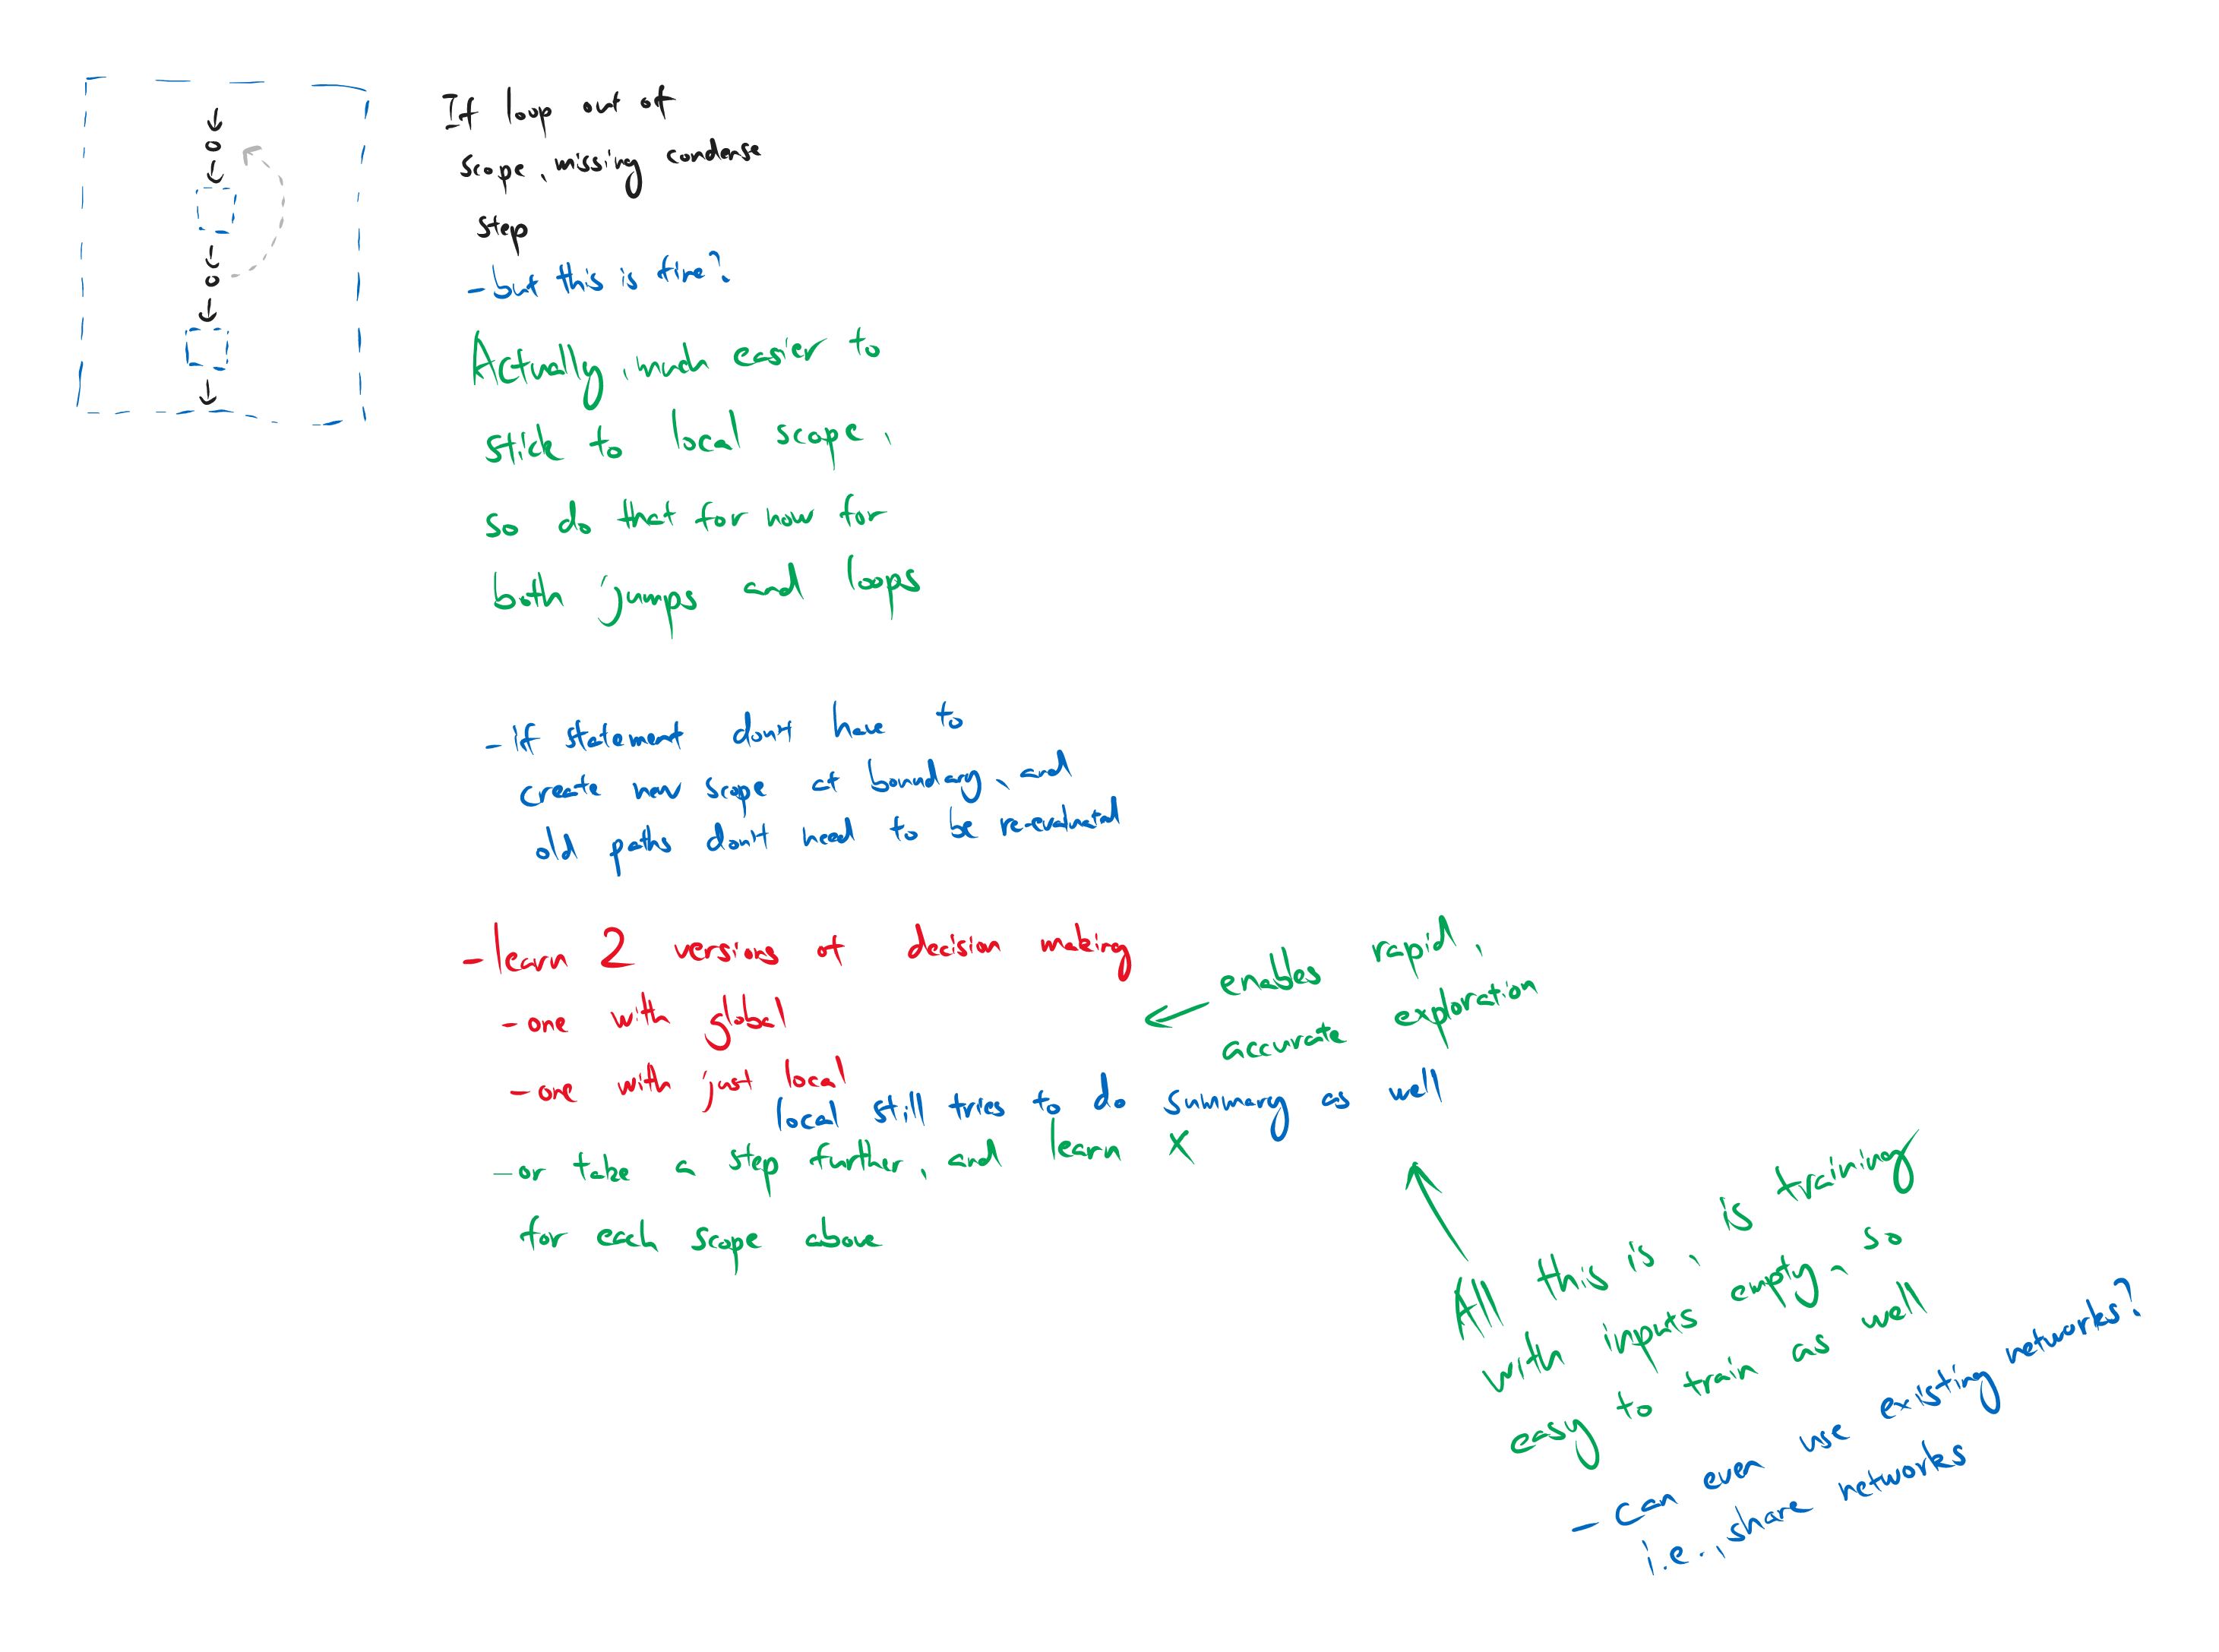 If loop out of
scope, missing condense
step
- but this is fine?
Actually, much easier to
stick to local scope,
so do that for now for
both jumps and loops
- if statement don't have to
create new scope at boundary, and
old paths don't need to be reevaluated
- learn 2 versions of decision making
- one with global
- one with just local
← enables rapid,
accurate exploration
local still tries to do summary as well
- or take a step further, and learn x
for each scope above
All this is, is training
with inputs empty, so
easy to train as well
- can even use existing networks?
i.e., share networks